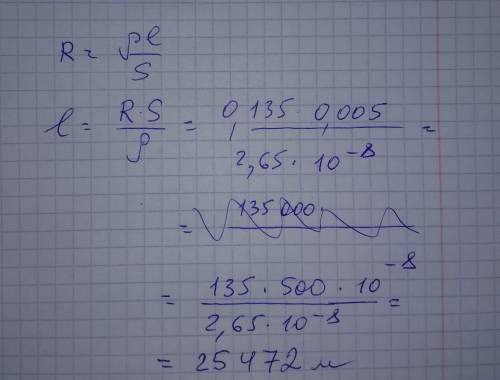 R = ρl/S
l = R·S/ρ = 0,135 · 0,005 / 2,65 · 10⁻⁸ =
= 135000
= 135 · 500 · 10⁻⁸ / 2,65 · 10⁻⁸ =
= 25472 м